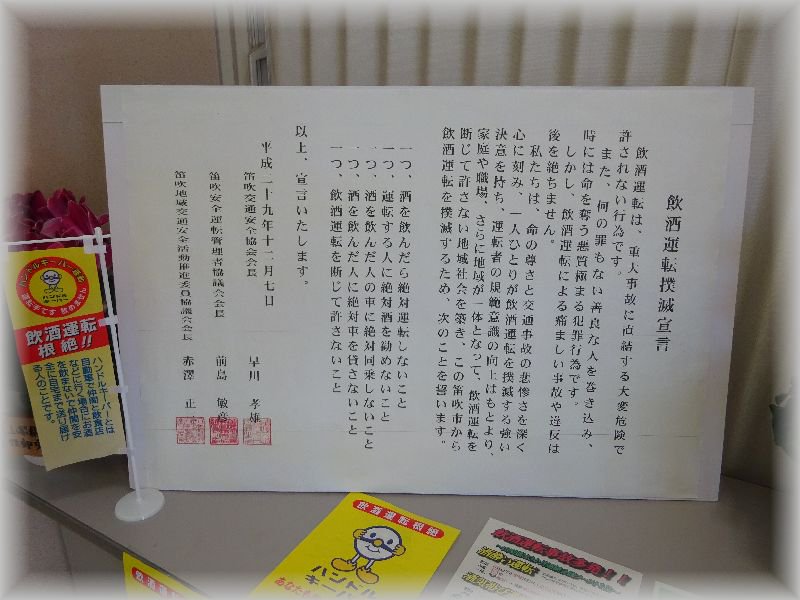 飲酒運転撲滅宣言
飲酒運転は、重大事故に直結する大変危険で
許されない行為です。
また、何の罪もない善良な人を巻き込み、
時には命を奪う悪質極まる犯罪行為です。
しかし、飲酒運転による痛ましい事故や違反は
後を絶ちません。
私たちは、命の尊さと交通事故の悲惨さを深く
心に刻み、一人ひとりが飲酒運転を撲滅する強い
決意を持ち、運転者の規範意識の向上はもとより、
家庭や職場、さらに地域が一体となって、飲酒運転を
断じて許さない地域社会を築き、この笛吹市から
飲酒運転を撲滅するため、次のことを誓います。
一つ、酒を飲んだら絶対運転しないこと
一つ、運転する人に絶対酒を勧めないこと
一つ、酒を飲んだ人の車に絶対同乗しないこと
一つ、酒を飲んだ人に絶対車を貸さないこと
一つ、飲酒運転を断じて許さないこと
以上、宣言いたします。
平成二十九年十二月七日
笛吹交通安全協会会長 早川 孝雄
笛吹安全運転管理者協議会会長 前島 敏彦
笛吹地域交通安全活動推進委員協議会会長 赤澤 正
ハンドルキーパー運動
ハンドル
キーパー
運転手です 飲めません
飲酒運転
根絶!!
ハンドルキーパーとは
自動車で仲間と飲食店
などに行く場合にお酒
を飲まないで仲間を安
全に自宅まで送り届け
る人のことです。
飲酒運転根絶
ハンドル
キーパー
飲酒運転事故多発!!
飲酒運転